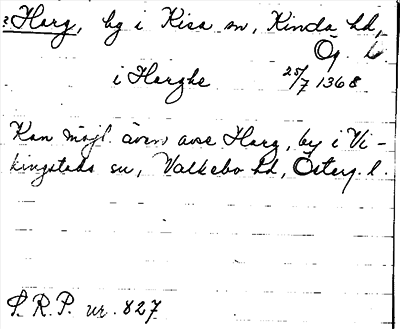 ?Harg, by i Kisa sn, Kinda hd,
Ög. l.
i Harghe 25/7 1368
Kan möjl. även avse Harg, by i Vi-
kingstads sn, Valkebo hd, Österg. l.
S.R.P. nr. 827